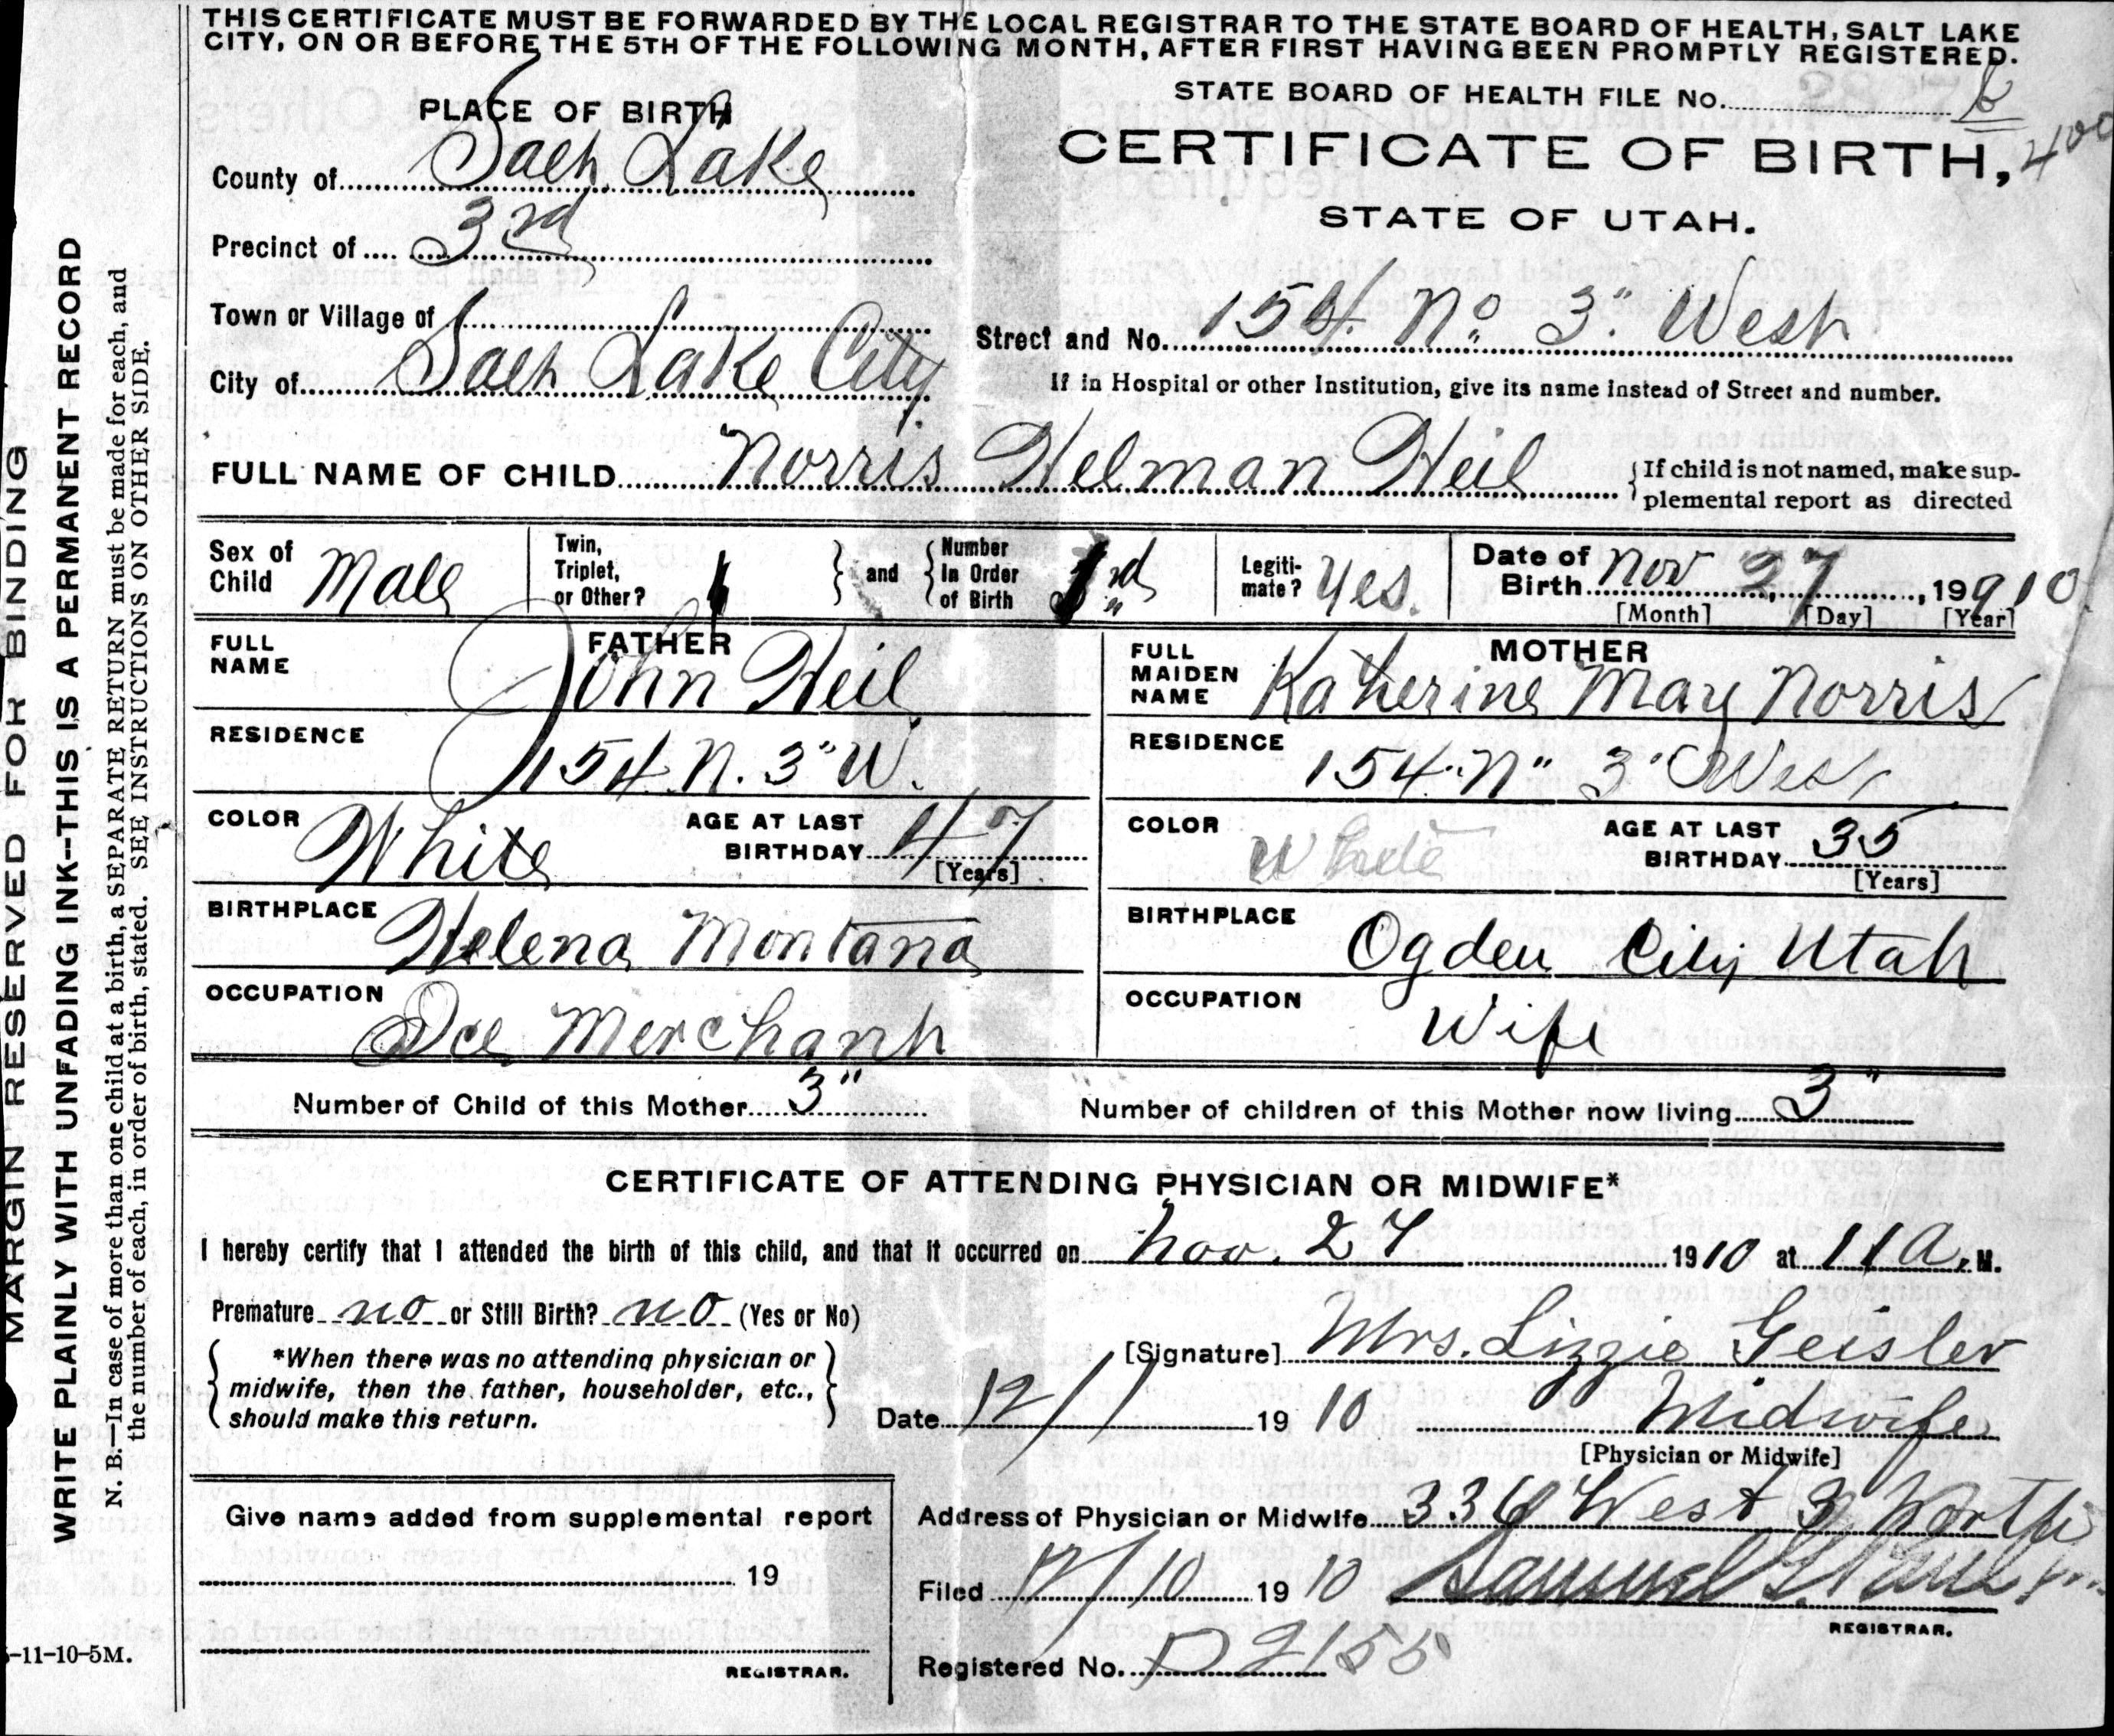 THIS CERTIFICATE MUST BE FORWARDED BY THE LOCAL REGISTRAR TO THE STATE BOARD OF HEALTH, SALT LAKE
CITY, ON OR BEFORE THE 5TH OF THE FOLLOWING MONTH, AFTER FIRST HAVING BEEN PROMPTLY REGISTERED.
STATE BOARD OF HEALTH FILE No.
400
CERTIFICATE OF BIRTH,
STATE OF UTAH.
PLACE OF BIRTH
County of Salt Lake
Precinct of 3rd
Town or Village of
City of Salt Lake City
Street and No. 154 No 3" West
If in Hospital or other Institution, give its name instead of Street and number.
FULL NAME OF CHILD Norris Helman Heil
{If child is not named, make sup-
plemental report as directed
Sex of Child Male
Twin, Triplet, or Other?
and
Number In Order of Birth
Legiti-mate? Yes.
Date of Birth Nov 27, 1910
[Month] [Day] [Year]
FATHER
FULL NAME John Heil
RESIDENCE 154 N. 3" W.
COLOR White
AGE AT LAST BIRTHDAY 47
[Years]
BIRTHPLACE Helena Montana
OCCUPATION Ice Merchant
MOTHER
FULL MAIDEN NAME Katherine May Norris
RESIDENCE 154 N" 3" West
COLOR White
AGE AT LAST BIRTHDAY 35
[Years]
BIRTHPLACE Ogden City Utah
OCCUPATION Wife
Number of Child of this Mother 3"
Number of children of this Mother now living 3"
CERTIFICATE OF ATTENDING PHYSICIAN OR MIDWIFE*
I hereby certify that I attended the birth of this child, and that it occurred on Nov. 27 1910 at 11 A. M.
Premature no or Still Birth? no (Yes or No)
*When there was no attending physician or
midwife, then the father, householder, etc.,
should make this return.
[Signature] Mrs. Lizzie Geisler
Date 12/1 1910 Midwife
[Physician or Midwife]
Give name added from supplemental report
19
REGISTRAR.
Address of Physician or Midwife 336 West 3 North
Filed 12/10 1910 Samuel G. Paul
REGISTRAR.
Registered No. D 2155
MARGIN RESERVED FOR BINDING
WRITE PLAINLY WITH UNFADING INK--THIS IS A PERMANENT RECORD
N. B.—In case of more than one child at a birth, a SEPARATE RETURN must be made for each, and
the number of each, in order of birth, stated. SEE INSTRUCTIONS ON OTHER SIDE.
-11-10-5M.